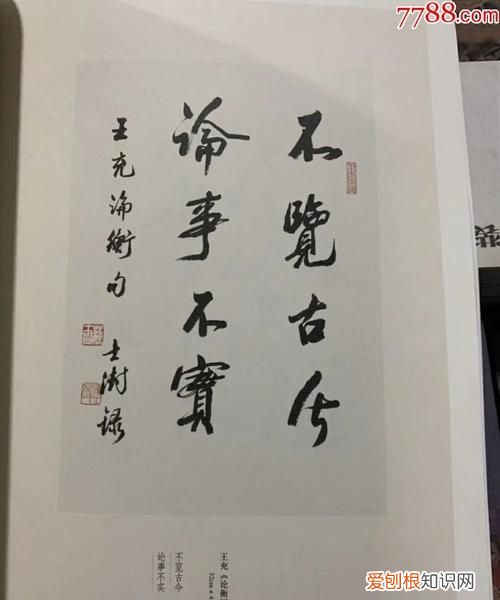 7788.com
不覽古今
論事不實
王充論衡句
士澍錄
王充《论衡
32cm×4
不览古今
论事不实
爱刨根知识网